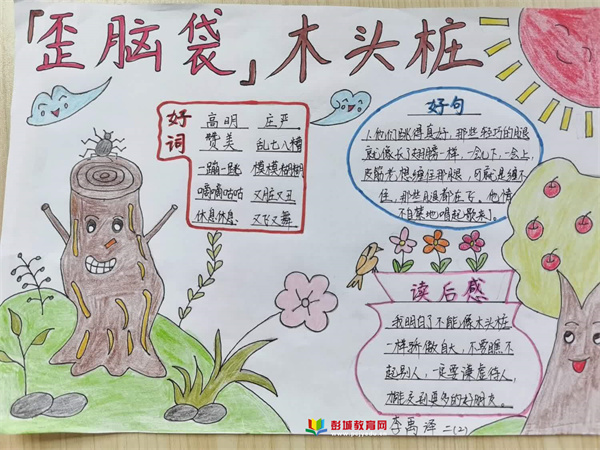 「歪脑袋」木头桩
好词
高明 庄严
赞美 乱七八糟
一蹦一跳 模模糊糊
嘀嘀咕咕 又脏又丑
休息休息 又飞又舞
好句
1、他们跳得真好,那些轻巧的腿
就像长了翅膀一样,一会儿下,一会上,
皮筋老想缠住那腿,可就是缠不
住,那些腿都在飞,他情
不自禁地唱起歌来了。
读后感
我明白了不能像木头桩
一样骄傲自大,不要瞧不
起别人,一定要谦虚待人,
才能交到更多的好朋友。
李禹泽 二(2)
彭城教育网